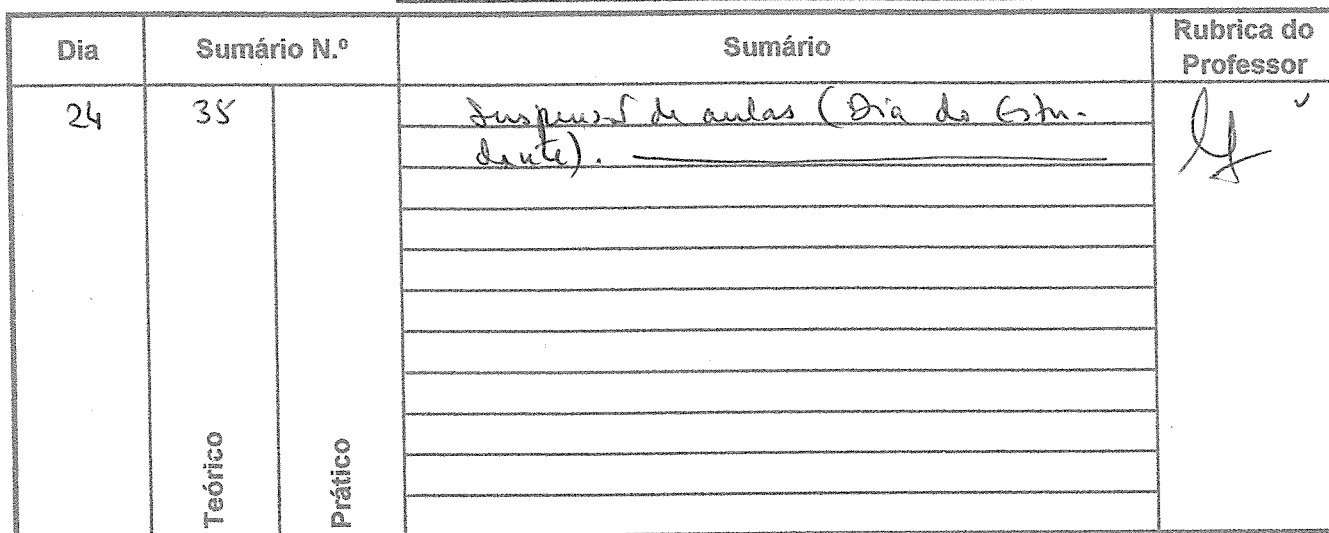 Dia Sumário N.º Sumário Rubrica do Professor
24 35 Suspensão de aulas (Dia do Estu-
dante).
Teórico Prático